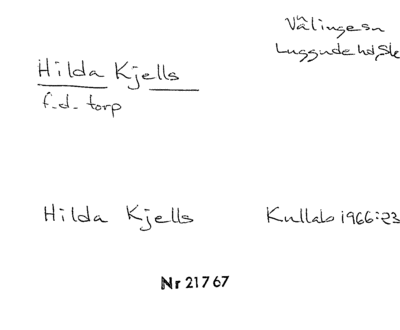 Välinge sn
Luggude hd, Sk
Hilda Kjells
f.d. torp
Hilda Kjells
Kullabo 1966:23
Nr 21767